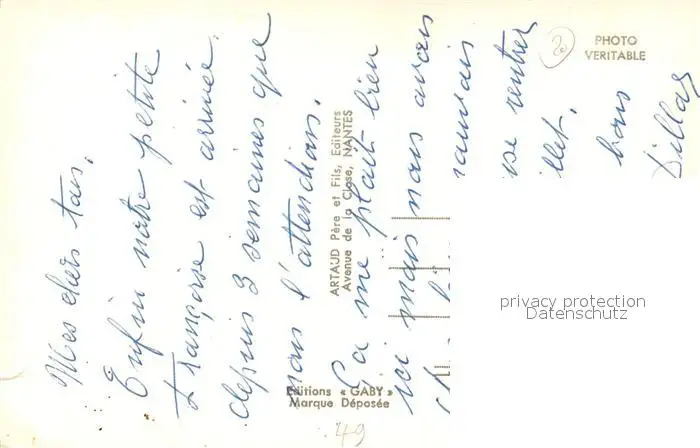 Mes chers tous,
Enfin notre petite
Françoise est arrivée,
depuis 3 semaines que
nous l'attendions.
Ça me plait bien
ici mais nous avons
mauvais
se rentrer
illet.
bons
PHOTO
VERITABLE
ARTAUD Père et Fils, Editeurs
Avenue de la Close, NANTES
Editions « GABY »
Marque Déposée
49
20
privacy protection
Datenschutz